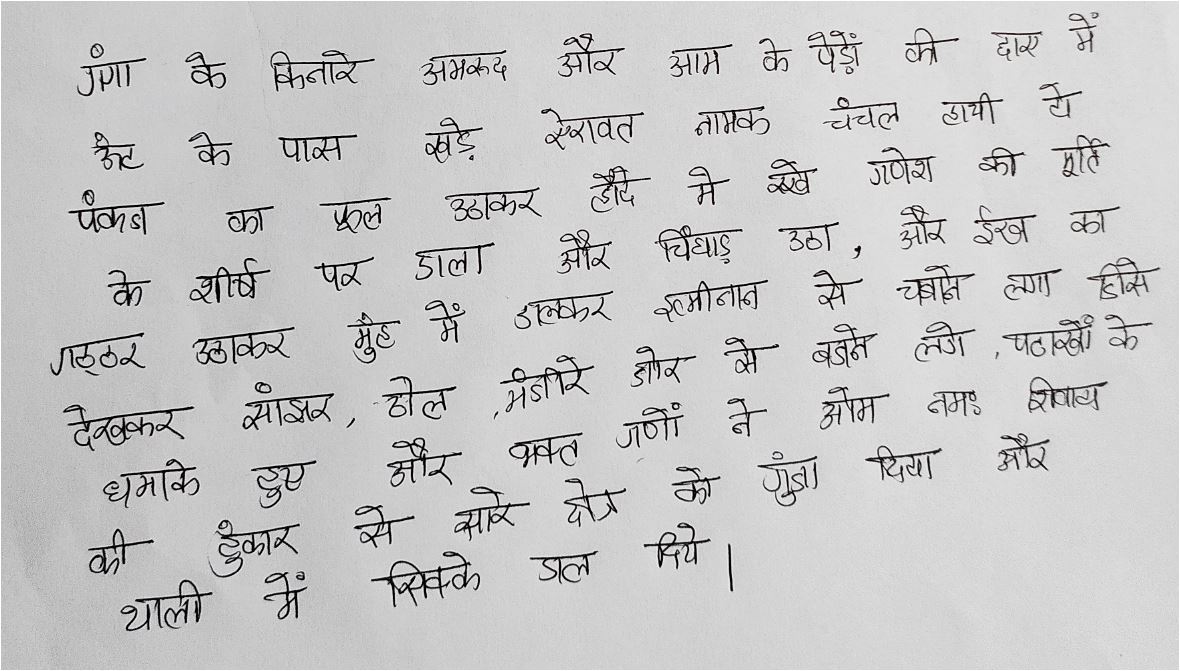 गंगा के किनारे अमरूद और आम के पेड़ों की छाव में
ऊँट के पास खड़े ऐरावत नामक चंचल हाथी ने
पंकज का फूल उठाकर हौदे मे रखे गणेश की मूर्ति
के शीर्ष पर डाला और चिंघाड़ उठा, और ईख का
गठ्ठर उठाकर मुँह में डालकर इत्मीनान से चबाने लगा जिसे
देखकर सांझर, ढोल, मंजीरे जोर से बजने लगे, पटाखों के
धमाके हुए और भक्त गणों ने ओम नमः शिवाय
की हुंकार से सारे क्षेत्र को गुंजा दिया और
थाली में सिक्के डाल दिये।